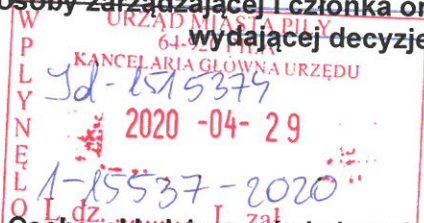 osoby zarządzającej i członka or
wydającej decyzje
WPŁYNĘŁO
URZĄD MIASTA PIŁY
64-920
KANCELARIA GŁÓWNA URZĘDU
Id-1515374
2020 -04- 29
1-15537-2020
L. dz. L. zał.